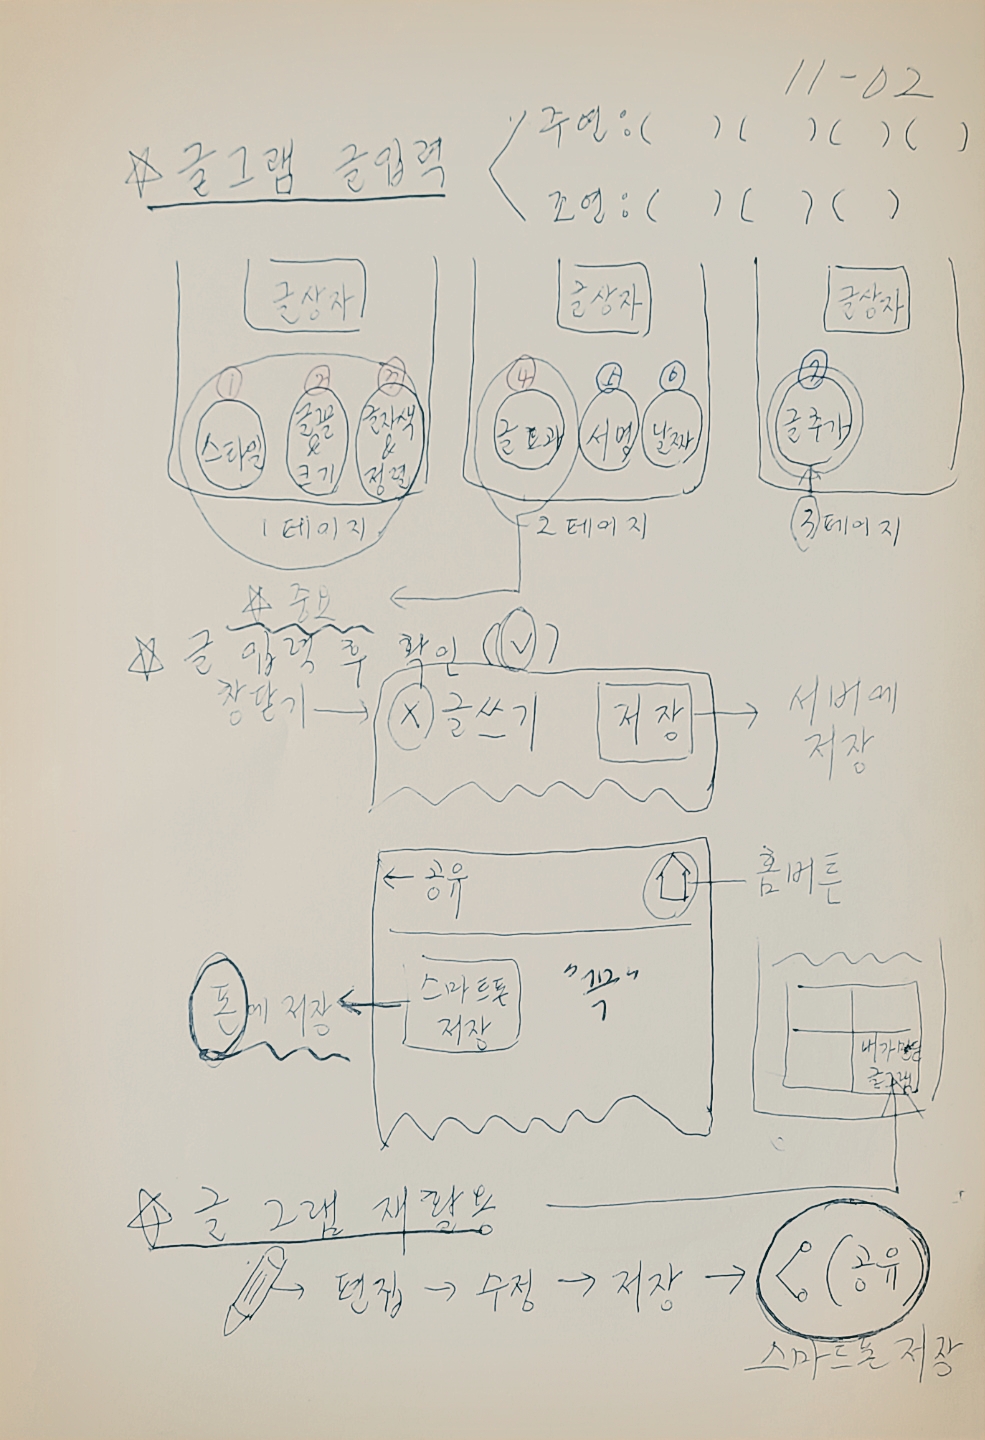 11-02
☆ 글그램 글입력
주연:(   )(   )(   )(   )
조연:(   )(   )(   )
글상자 글상자 글상자
① ② ③ ④ ⑤ ⑥ ⑦
스타일 글꼴 & 크기 글자색 & 정렬 글효과 서명 날짜 글추가
1페이지 2페이지 ③페이지
☆ 중요
☆ 글 입력 후 확인 (✓)
창닫기 → X 글쓰기 저장 → 서버에 저장
← 공유 홈버튼
폰에 저장 ← 스마트폰 저장 "꾹"
내가만든 글그램
☆ 글 그램 재활용
→ 편집 → 수정 → 저장 → (공유)
스마트폰 저장